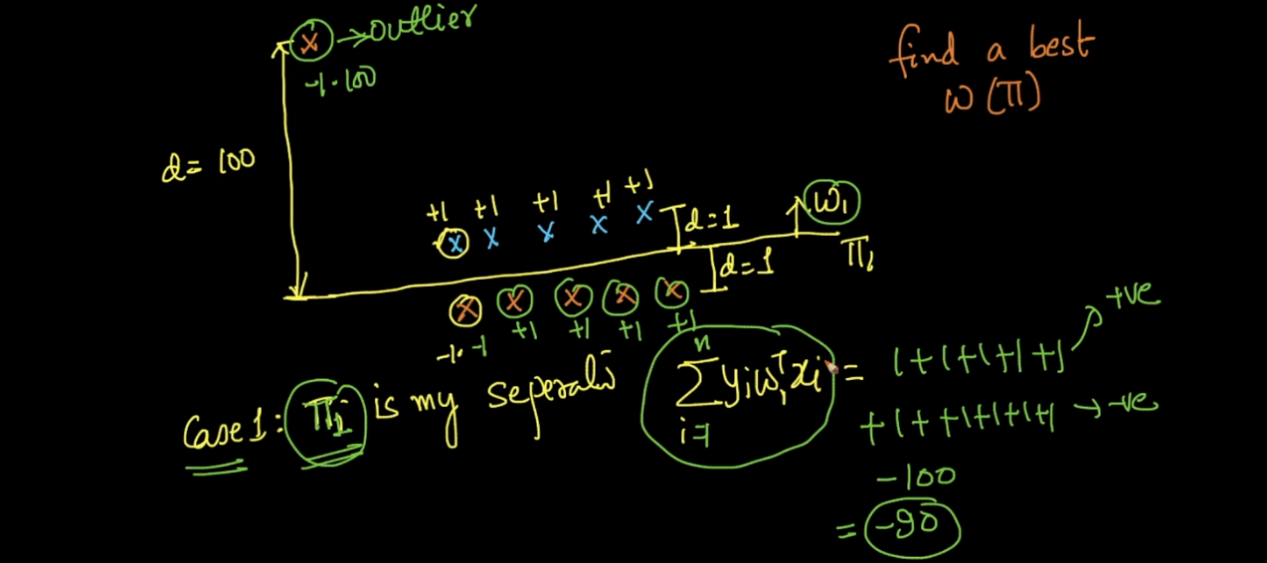 x → outlier
-1.100
find a best
w (π)
d = 100
+1 +1 +1 +1 +1
x x x x x
d=1
w₁
d=1
π₁
x x x x x
-1.-1 +1 +1 +1 +1
Case 1: π₁ is my seperati
n
∑ yᵢw₁ᵀxᵢ = 1+1+1+1+1 → +ve
i=1
+1++1+1+1+1 → -ve
-100
= -90